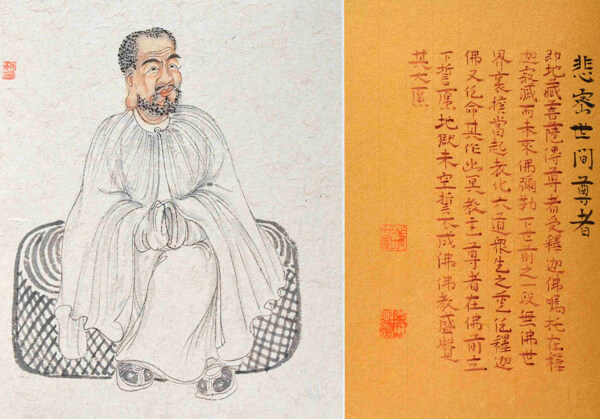 悲密世間尊者
即地藏菩薩傳尊者受釋迦佛囑托在釋
迦寂滅而未來佛彌勒下世前之一段無佛世
界裏擔當起教化六道衆生之重任釋迦
佛又任命其作幽冥教主尊者在佛前立
下誓願地獄未空誓不成佛佛教盛贊
其大願